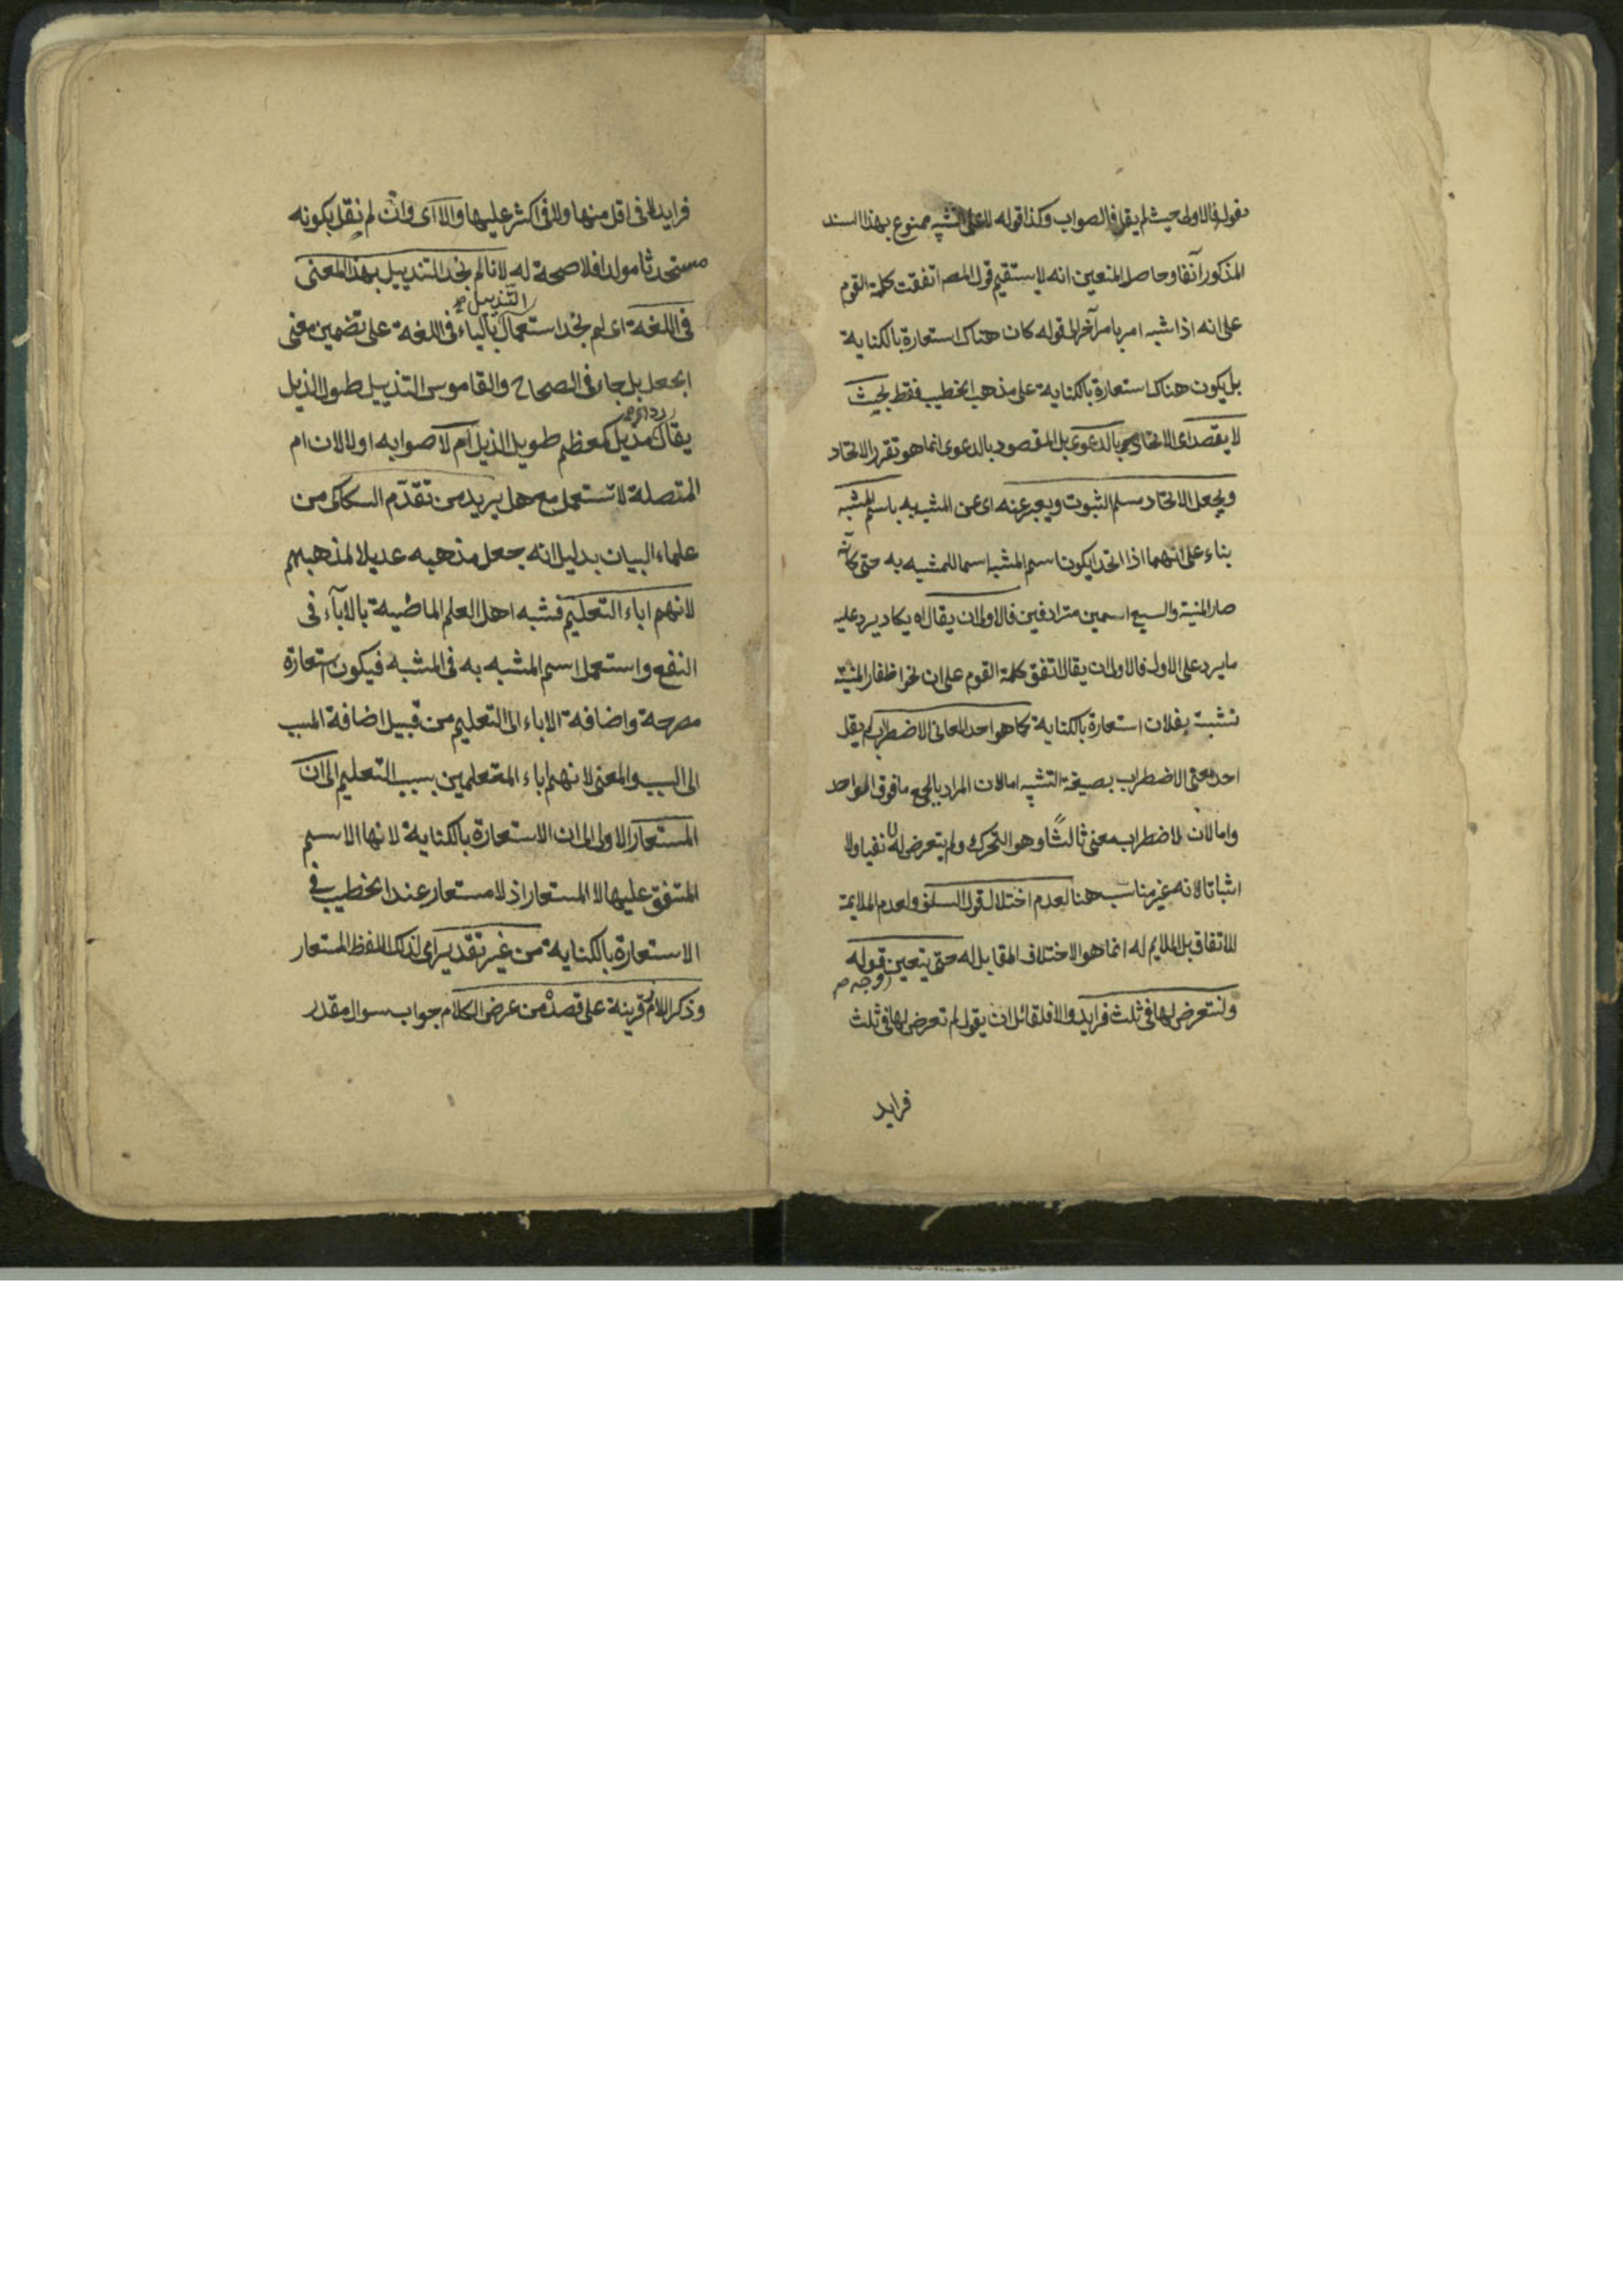 بقوله فالاولى حيث لم يقل فالصواب وكذا قوله لا على التشبيه ممنوع بهذا السند
المذكور آنفا وحاصل المنعين انه لا يستقيم قول المصـ اتفقت كلمة القوم
على انه اذا شبه امر بامر آخر الى قوله كان هناك استعارة بالكناية
بل يكون هناك استعارة بالكناية على مذهب الخطيب فقط بحيث
لا يقصد اى الاتحاد بالدعوى بل المقصود بالدعوى انما هو تقرر الاتحاد
ويجعل الاتحاد مسلم الثبوت ويعبر عنه اى عن المشبه به باسم المشبه
بناء على انهما اذا اتحدا يكون اسم المشبه اسما للمشبه به حتى كانه
صار المنية والسبع اسمين مترادفين فالاولى ان يقال اه يكاد يرد عليه
ما يرد على الاول فالاولى ان يقال اتفق كلمة القوم على ان نحو اظفار المنية
نشبت بفلان استعارة بالكناية كما هو احد المعانى الاضطراب لم يقل
احد معنى الاضطراب بصيغة التثنية اما لان المراد بالجمع ما فوق الواحد
واما لان للاضطراب معنى ثالثا وهو التحرك ولم يتعرض له لا نفيا ولا
اثباتا لانه غير مناسب هنا لعدم اختلال قول السلف ولعدم الملايمة
للاتفاق بل الملايم له انما هو الاختلاف المقابل له حتى يتعين قوله
وجه صـ
ولنتعرض لها فى ثلث فرايد والا فلقائل ان يقول لم تعرض لها فى ثلث
فرايد
فرايد لا فى اقل منها ولا فى اكثر عليها والا اى وان لم نقل بكونه
مستحدثا مولدا فلا صحة له لانا لم نجد التذييل بهذا المعنى
التذييل صـ
فى اللغة اى لم نجد استعمال بالباء فى اللغة على تضمين معنى
الجعل بل جاء فى الصحاح والقاموس التذييل طول الذيل
رداء صـ
يقال مذيل كمعظم طويل الذيل ام لا صوابه او لا لان ام
المتصلة لا تستعمل مع هل يريد من تقدّم السكاكى من
علماء البيان بدليل انه جعل مذهبه عديلا لمذهبهم
لانهم اباء التعليم فشبه اهل العلم الماضية بالاباء فى
النفع واستعمل اسم المشبه به فى المشبه فيكون استعارة
مصرحة واضافة الاباء الى التعليم من قبيل اضافة المسبب
الى السبب والمعنى لانهم اباء المتعلمين بسبب التعليم الى ان
المستعار الاولى الى ان الاستعارة بالكناية لانها الاسم
المتفق عليها لا المستعار اذ لا مستعار عند الخطيب فى
الاستعارة بالكناية من غير تقدير اى لذلك اللفظ المستعار
وذكر اللازم قرينة على قصده من عرض الكلام جواب سوال مقدر